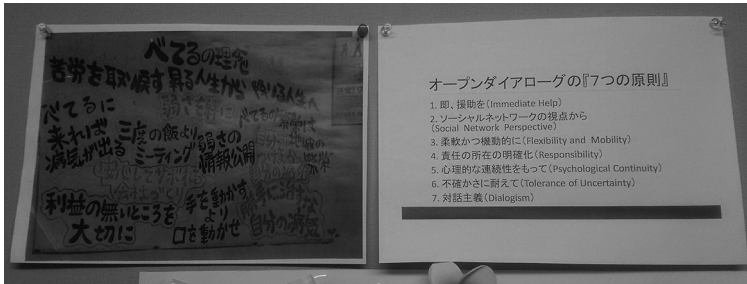 べてるの理念
苦労を取り戻す 昇る人生から 降りる人生へ
弱さを絆に
べてるに
来れば
病気が出る
三度の飯より
ミーティング
弱さの
情報公開
利益の無いところを
大切に
手を動かす
より
口を動かせ
勝手に治すな
自分の病気
オープンダイアローグの『7つの原則』
1. 即、援助を(Immediate Help)
2. ソーシャルネットワークの視点から
(Social Network Perspective)
3. 柔軟かつ機動的に(Flexibility and Mobility)
4. 責任の所在の明確化(Responsibility)
5. 心理的な連続性をもって(Psychological Continuity)
6. 不確かさに耐えて(Tolerance of Uncertainty)
7. 対話主義(Dialogism)